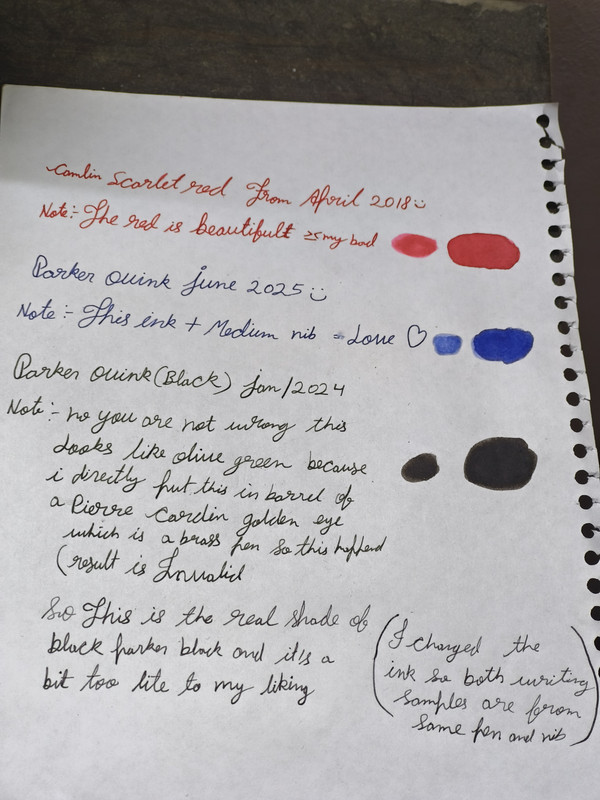 Camlin Scarlet red From April 2018
Note:- The red is beautifult my bad
Parker Quink june 2025
Note:- This ink + Medium nib = Love ♡
Parker Quink (Black) jan/2024
Note:- no you are not wrong this
Looks like olive green because
i directly put this in barrel of
a Pierre Cardin golden eye
which is a brass pen so this happend
(result is Invalid
So This is the real shade of
black parker black and it's a
bit too lite to my liking
(I changed the
ink so both writing
samples are from
same pen and nib)